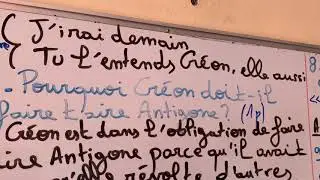 J'irai demain
Tu l'entends Créon, elle aussi
- Pourquoi Créon doit-il
faire taire Antigone? (1p)
Créon est dans l'obligation de faire
Antigone parce qu'il avait
révolte d'autres
8